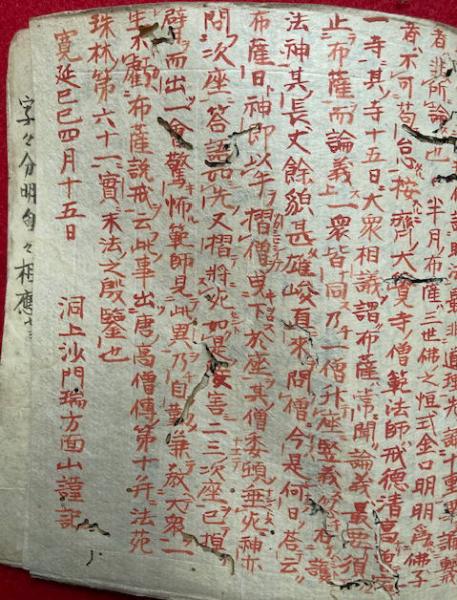 者非所論也 半月布薩三世佛之恒式金口明明爲佛子
者不可苟怠按齊大覺寺僧範法師戒德清高
一寺其寺十五日大衆相議謂布薩常聞論義最要須
止布薩而論義一衆皆同乃一僧升座竪義
法神其長丈餘貌甚雄峻直來問僧今是何日答云
布薩日神即以手搨僧曳下於座其僧委頓垂死神亦
問次座答語如先又搨將死如是害二三次座已
而出一會驚怖範師見此異乃自兼敎大衆一
生不虧布薩說戒云此事出唐高僧傳第十并法苑
珠林第六十一實末法之殷鑒也
寛延己巳四月十五日 洞上沙門瑞方面山謹記
字々分明句々相應